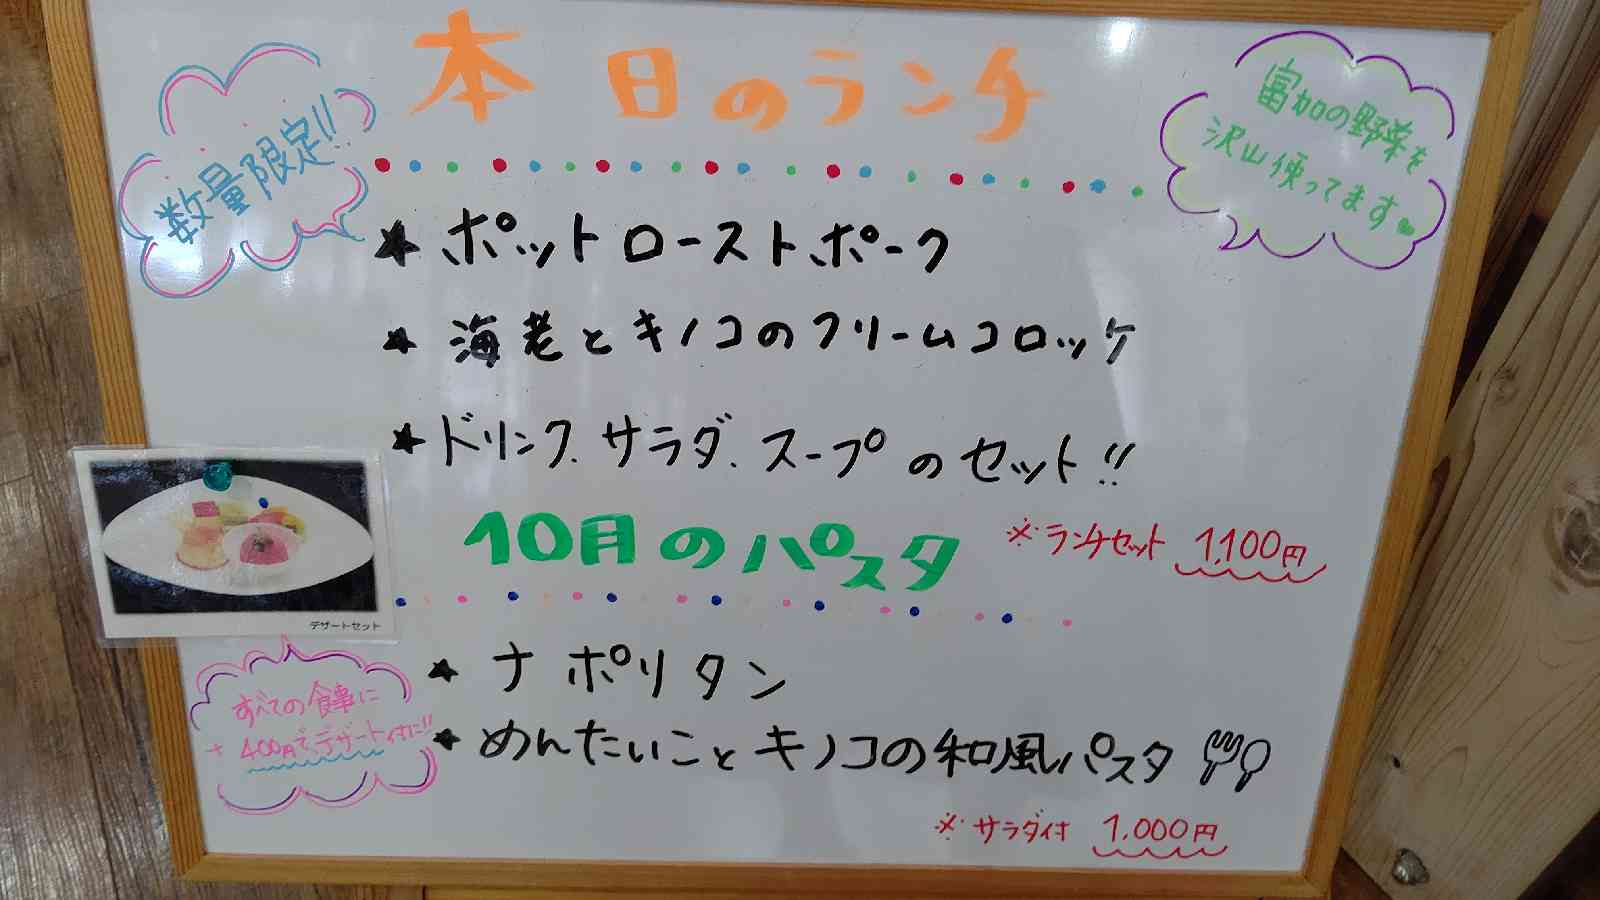 本日のランチ
数量限定!!
富加の野菜を
沢山使ってます
★ポットローストポーク
★海老とキノコのクリームコロッケ
★ドリンク、サラダ、スープのセット!!
※ランチセット 1,100円
デザートセット
10月のパスタ
★ナポリタン
★めんたいことキノコの和風パスタ
※サラダ付 1,000円
すべての食事に
+400円でデザート付に!!